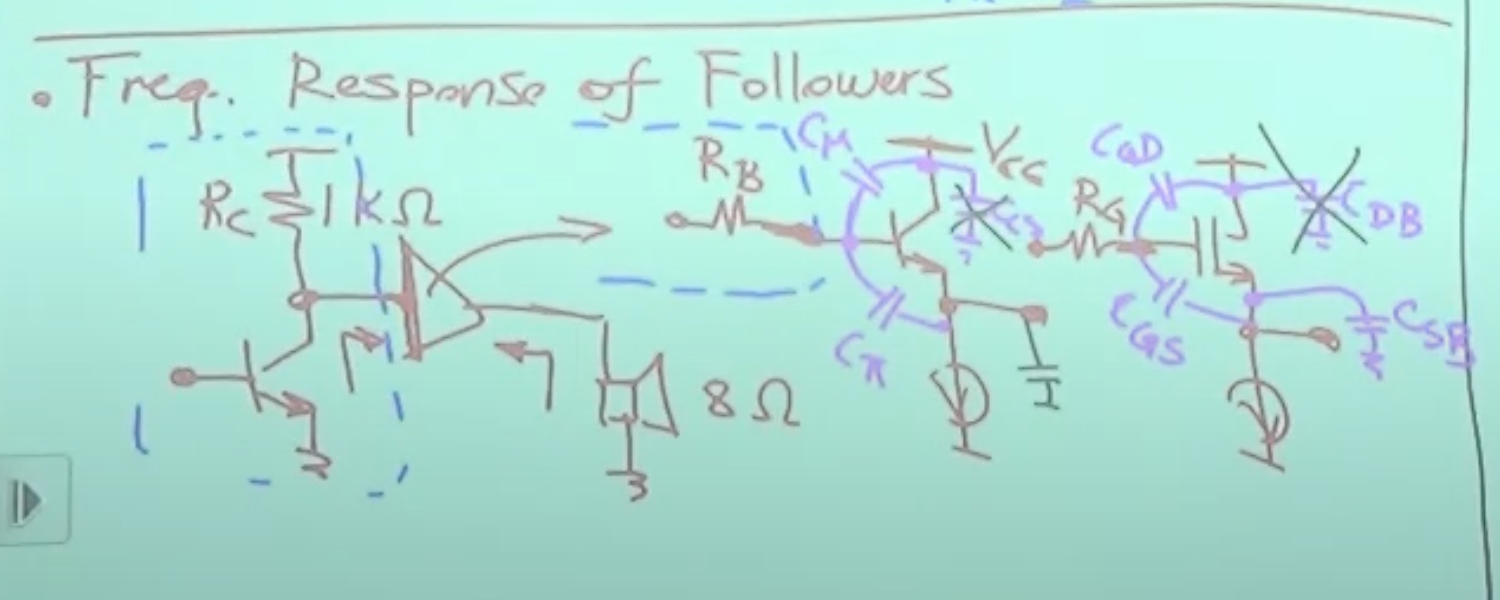 . Freq. Response of Followers
R_C 1 kΩ
8 Ω
R_B
C_μ
V_CC
C_π
R_G
C_GD
C_DB
C_GS
C_SB